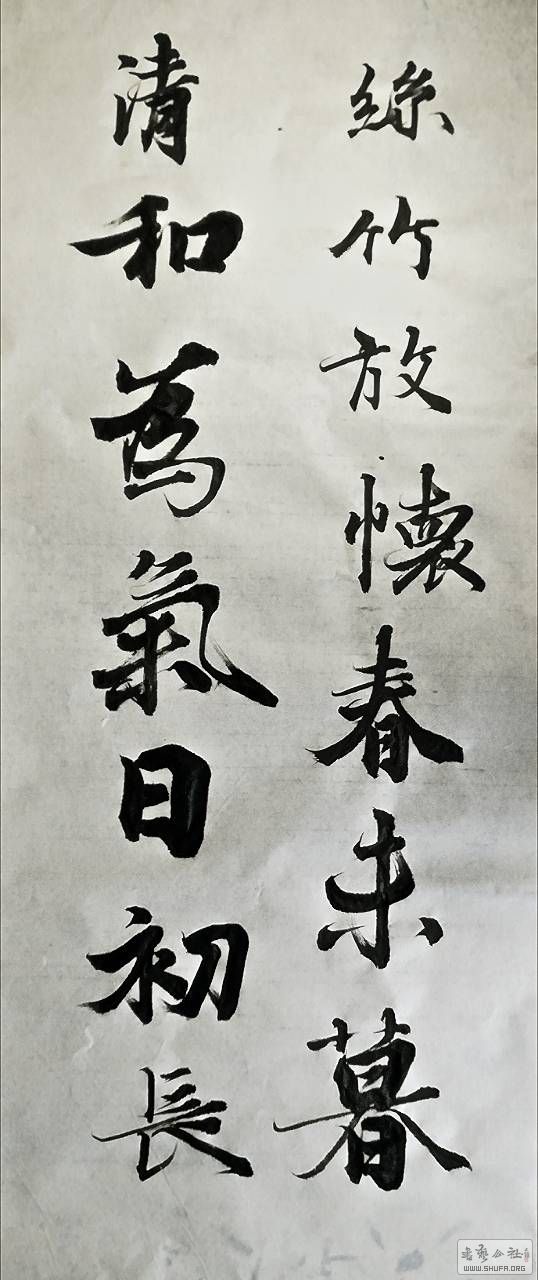 絲竹放懷春未暮
清和為氣日初長
書藝公社
WWW.SHUFA.ORG